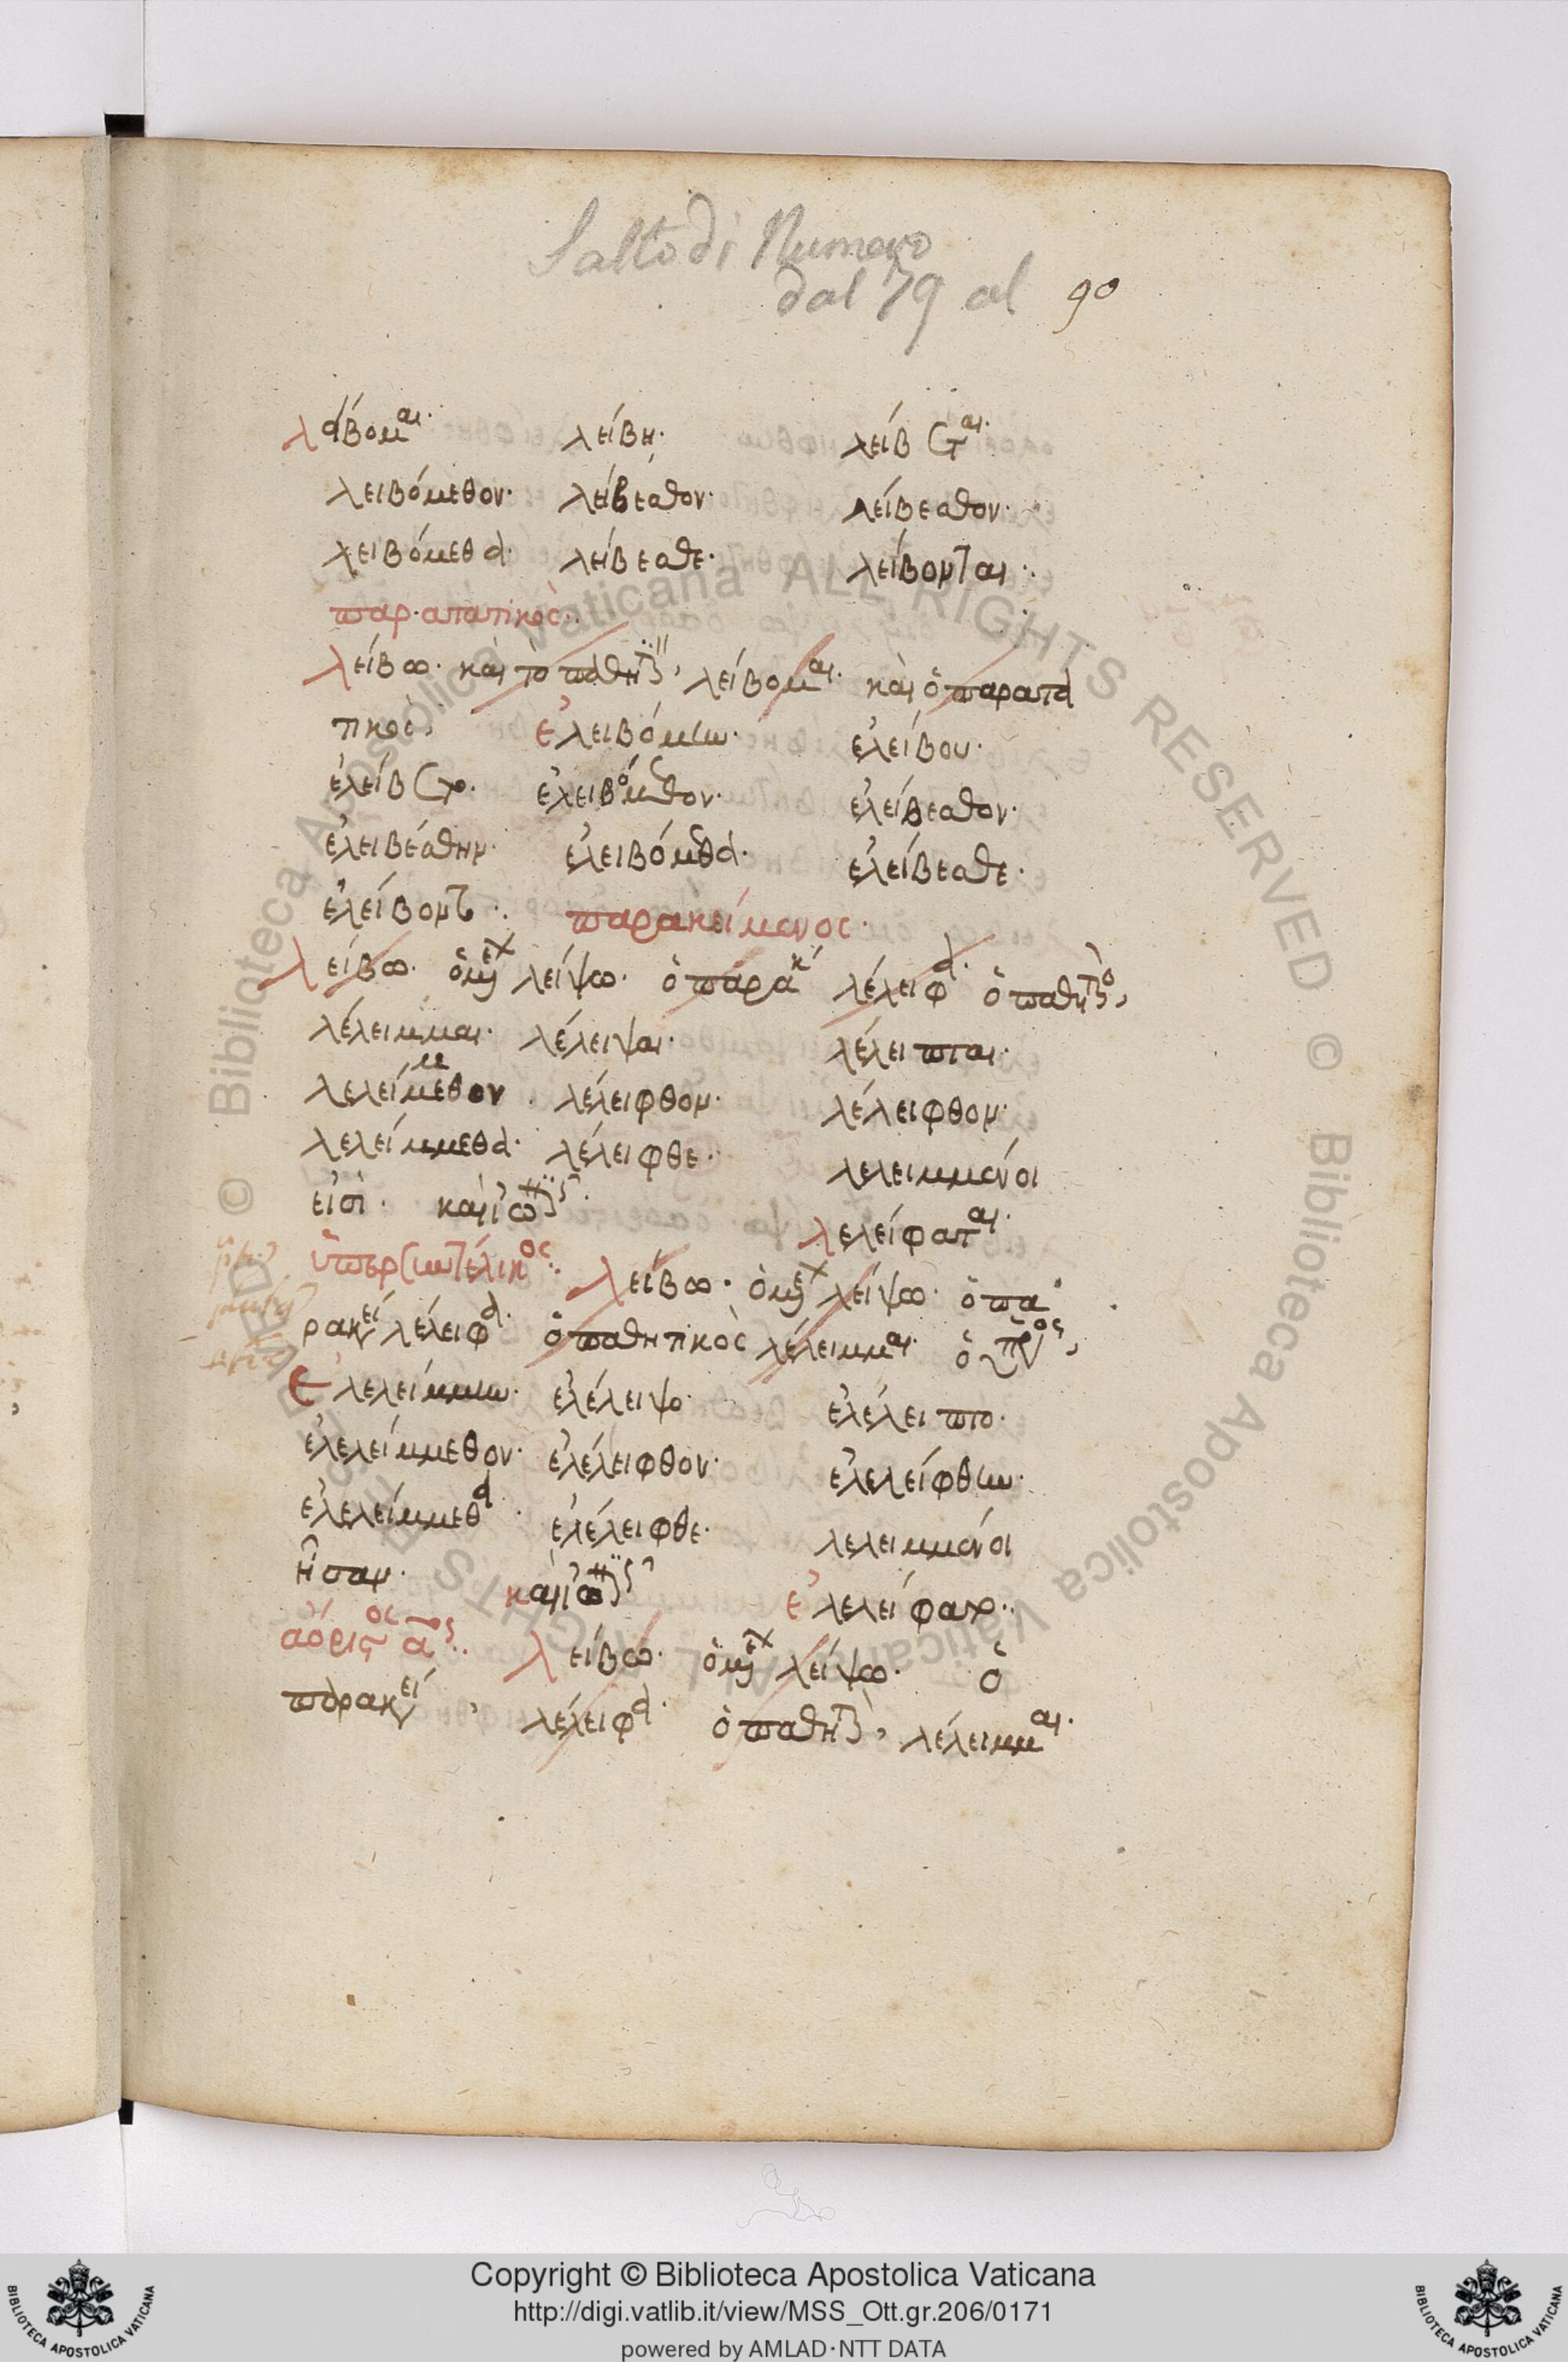 Salto di Numero
dal 79 al 90
λείβομαι· λείβῃ· λείβεται·
λειβόμεθον· λείβεσθον· λείβεσθον·
λειβόμεθα· λείβεσθε· λείβονται·
παρατατικός·
λείβω· καὶ τὸ παθητικόν, λείβομαι· καὶ ὁ παρατα
τικός, ἐλειβόμην· ἐλείβου·
ἐλείβετο· ἐλειβόμεθον· ἐλείβεσθον·
ἐλειβέσθην· ἐλειβόμεθα· ἐλείβεσθε·
ἐλείβοντο· παρακείμενος·
λείβω· ὁ μέλλων λείψω· ὁ παρακ λέλειφα· ὁ παθητικὸς,
λέλειμμαι· λέλειψαι· λέλειπται·
λελείμμεθον· λέλειφθον· λέλειφθον·
λελείμμεθα· λέλειφθε· λελειμμένοι
εἰσί· καὶ ἰωνικῶς· λελείφαται·
ὑπερσυντέλικος· λείβω· ὁ μέλλων λείψω· ὁ πα
ρακεί λέλειφα· ὁ παθητικὸς λέλειμμαι· ὁ ὑπερσυντέλικος,
ἐλελείμμην· ἐλέλειψο· ἐλέλειπτο·
ἐλελείμμεθον· ἐλέλειφθον· ἐλελείφθην·
ἐλελείμμεθα· ἐλέλειφθε· λελειμμένοι
ἦσαν· καὶ ἰωνικῶς ἐλελείφατο·
ἀόριστος α· λείβω· ὁ μέλλων λείψω· ὁ
παρακεί, λέλειφα· ὁ παθητικὸς, λέλειμμαι·
Copyright © Biblioteca Apostolica Vaticana
http://digi.vatlib.it/view/MSS_Ott.gr.206/0171
powered by AMLAD·NTT DATA
BIBLIOTECA APOSTOLICA VATICANA
BIBLIOTECA APOSTOLICA VATICANA
© Biblioteca Apostolica Vaticana ALL RIGHTS RESERVED © Biblioteca Apostolica Vaticana ALL RIGHTS RESERVED